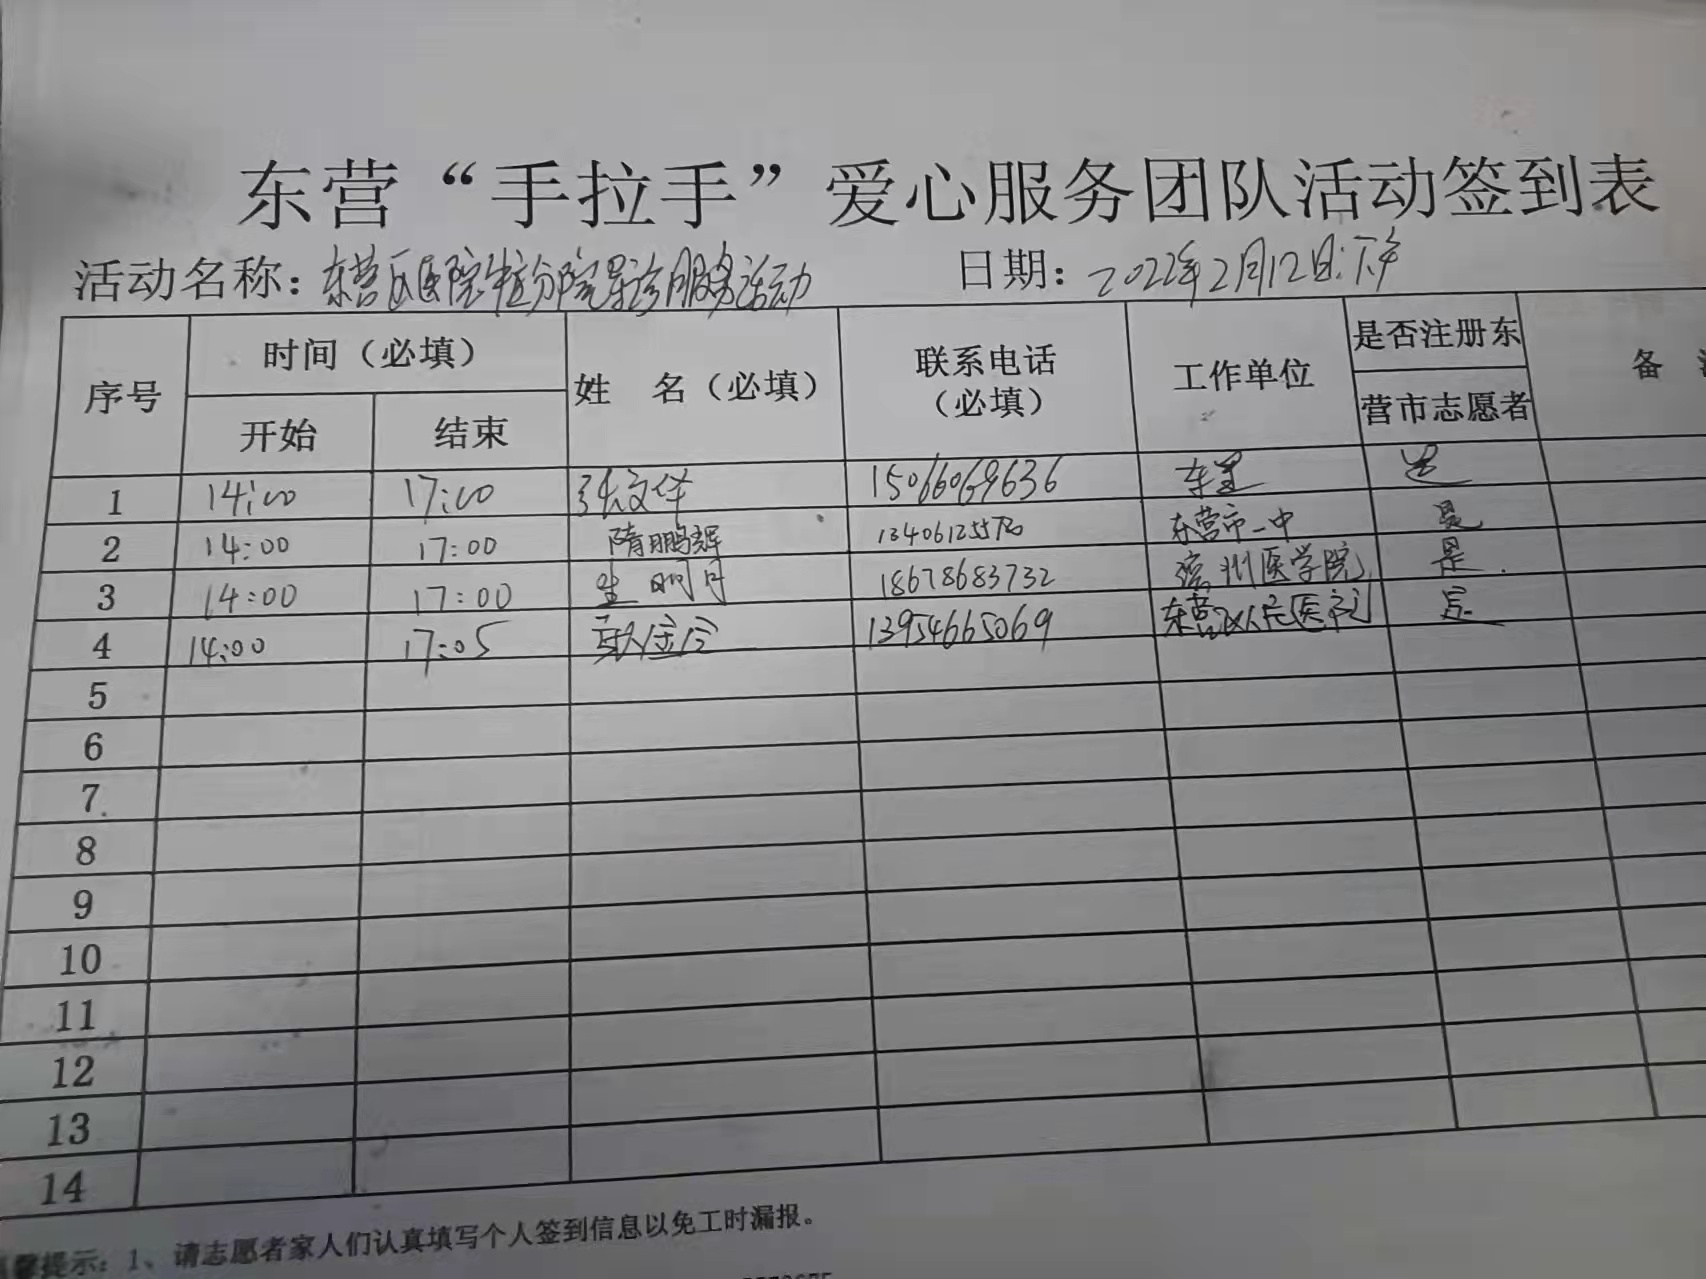 东营“手拉手”爱心服务团队活动签到表
活动名称：东营区医院 分院导诊服务活动 日期：2022年2月12日下午
序号 时间（必填） 姓 名（必填） 联系电话（必填） 工作单位 是否注册东营市志愿者 备
开始 结束
1 14:00 17:00 张文华 15066069636 是
2 14:00 17:00 隋鹏辉 东营市一中 是
3 14:00 17:00 生明月 18678683732 滨州医学院 是
4 14:00 17:05 13954665069 东营区人民医院 是
5
6
7
8
9
10
11
12
13
14
提示：1、请志愿者家人们认真填写个人签到信息以免工时漏报。